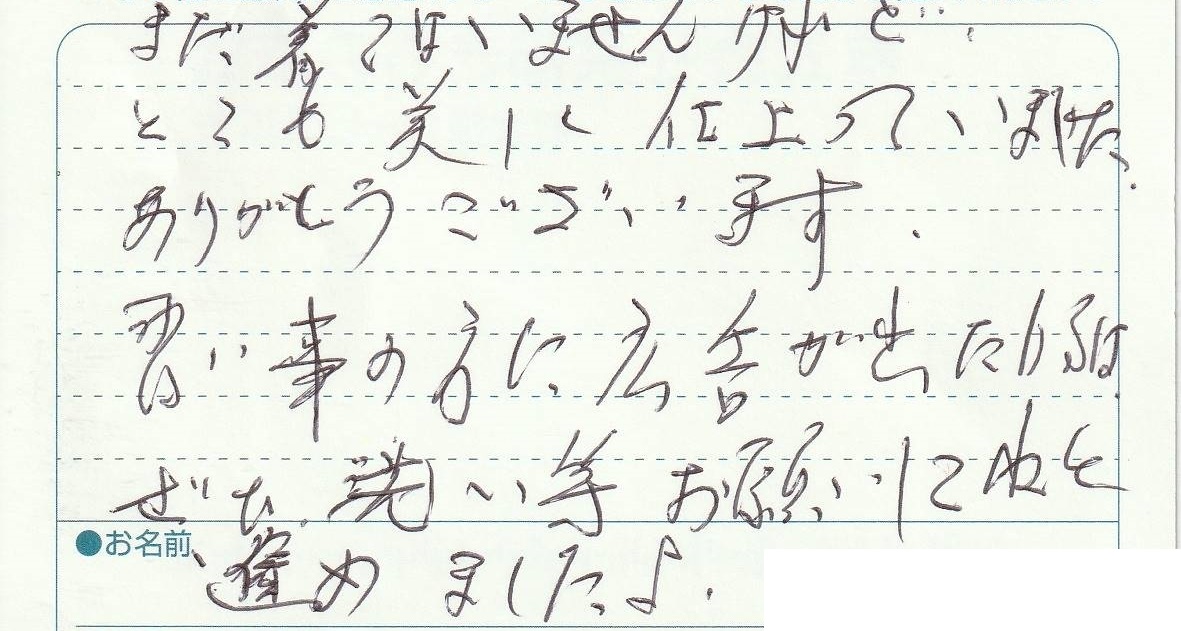 まだ着てはいませんけれど.
とても美しく仕上っていました.
ありがとうございます.
習い事の方に広告が出た
ぜひ洗い等お願いしてねと
●お名前
進めましたよ.